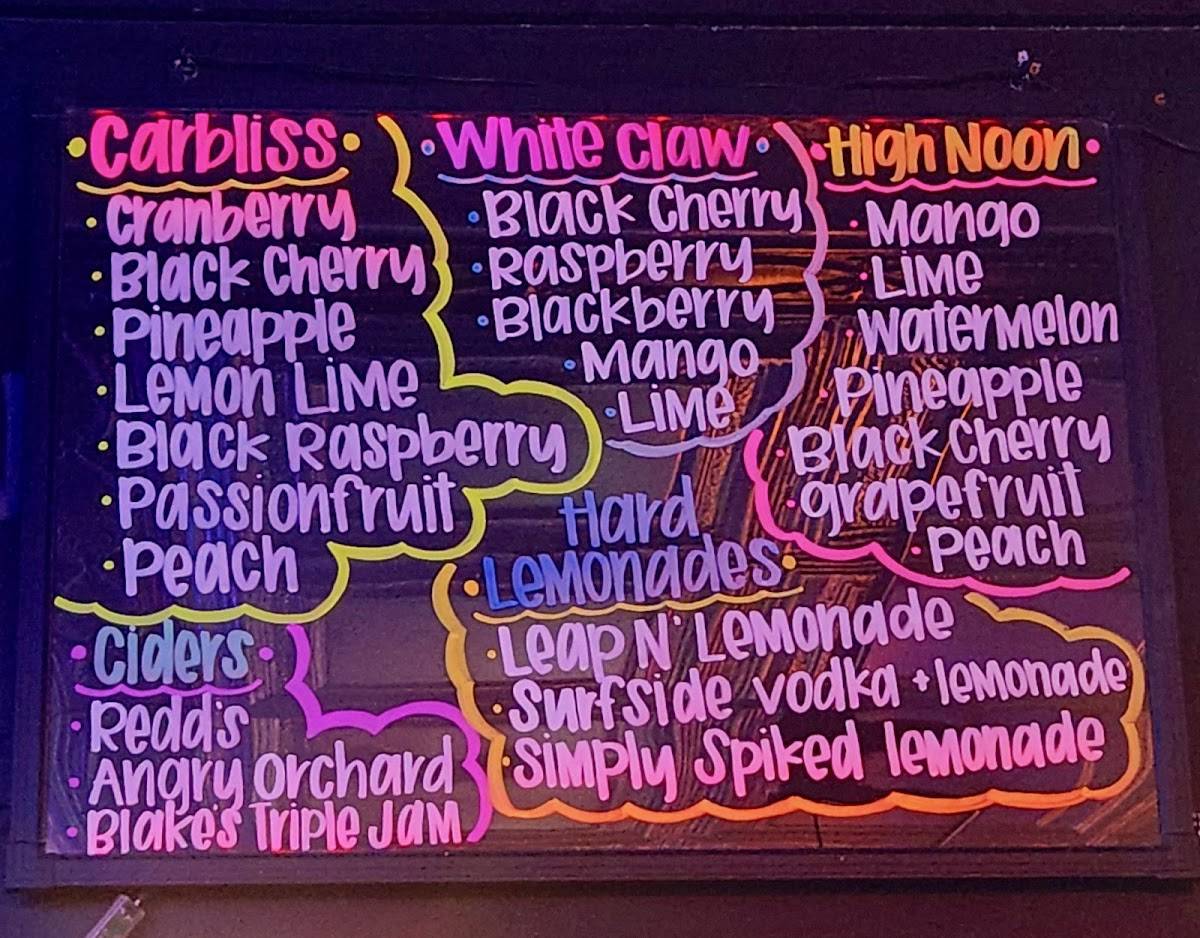 Carbliss
Cranberry
Black Cherry
Pineapple
Lemon Lime
Black Raspberry
Passionfruit
Peach
White Claw
Black Cherry
Raspberry
Blackberry
Mango
Lime
High Noon
Mango
Lime
Watermelon
Pineapple
Black Cherry
grapefruit
Peach
Ciders
Redd's
Angry Orchard
Blake's Triple Jam
Hard
Lemonades
Leap N' Lemonade
Surfside vodka + lemonade
Simply Spiked lemonade